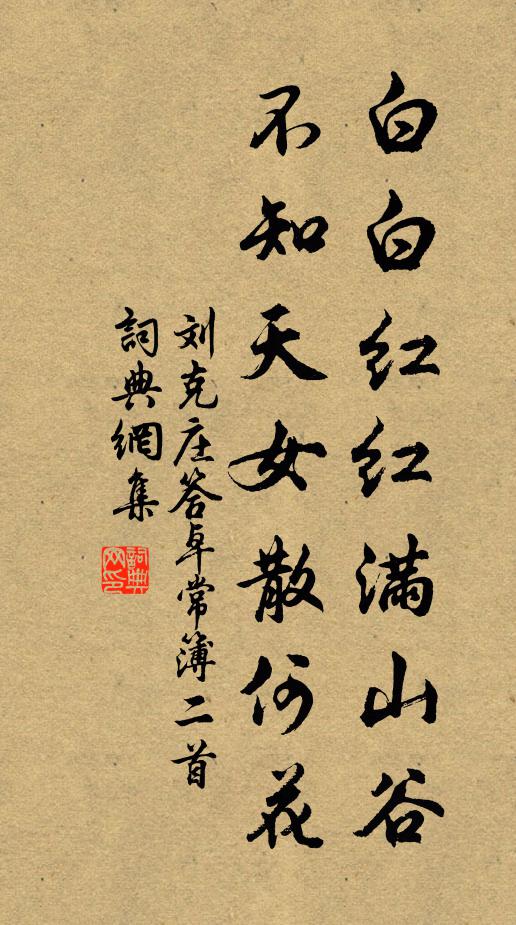 白白红红满山谷
不知天女散何花
刘克庄答卓常簿二首
詞典網集
詞典
网印